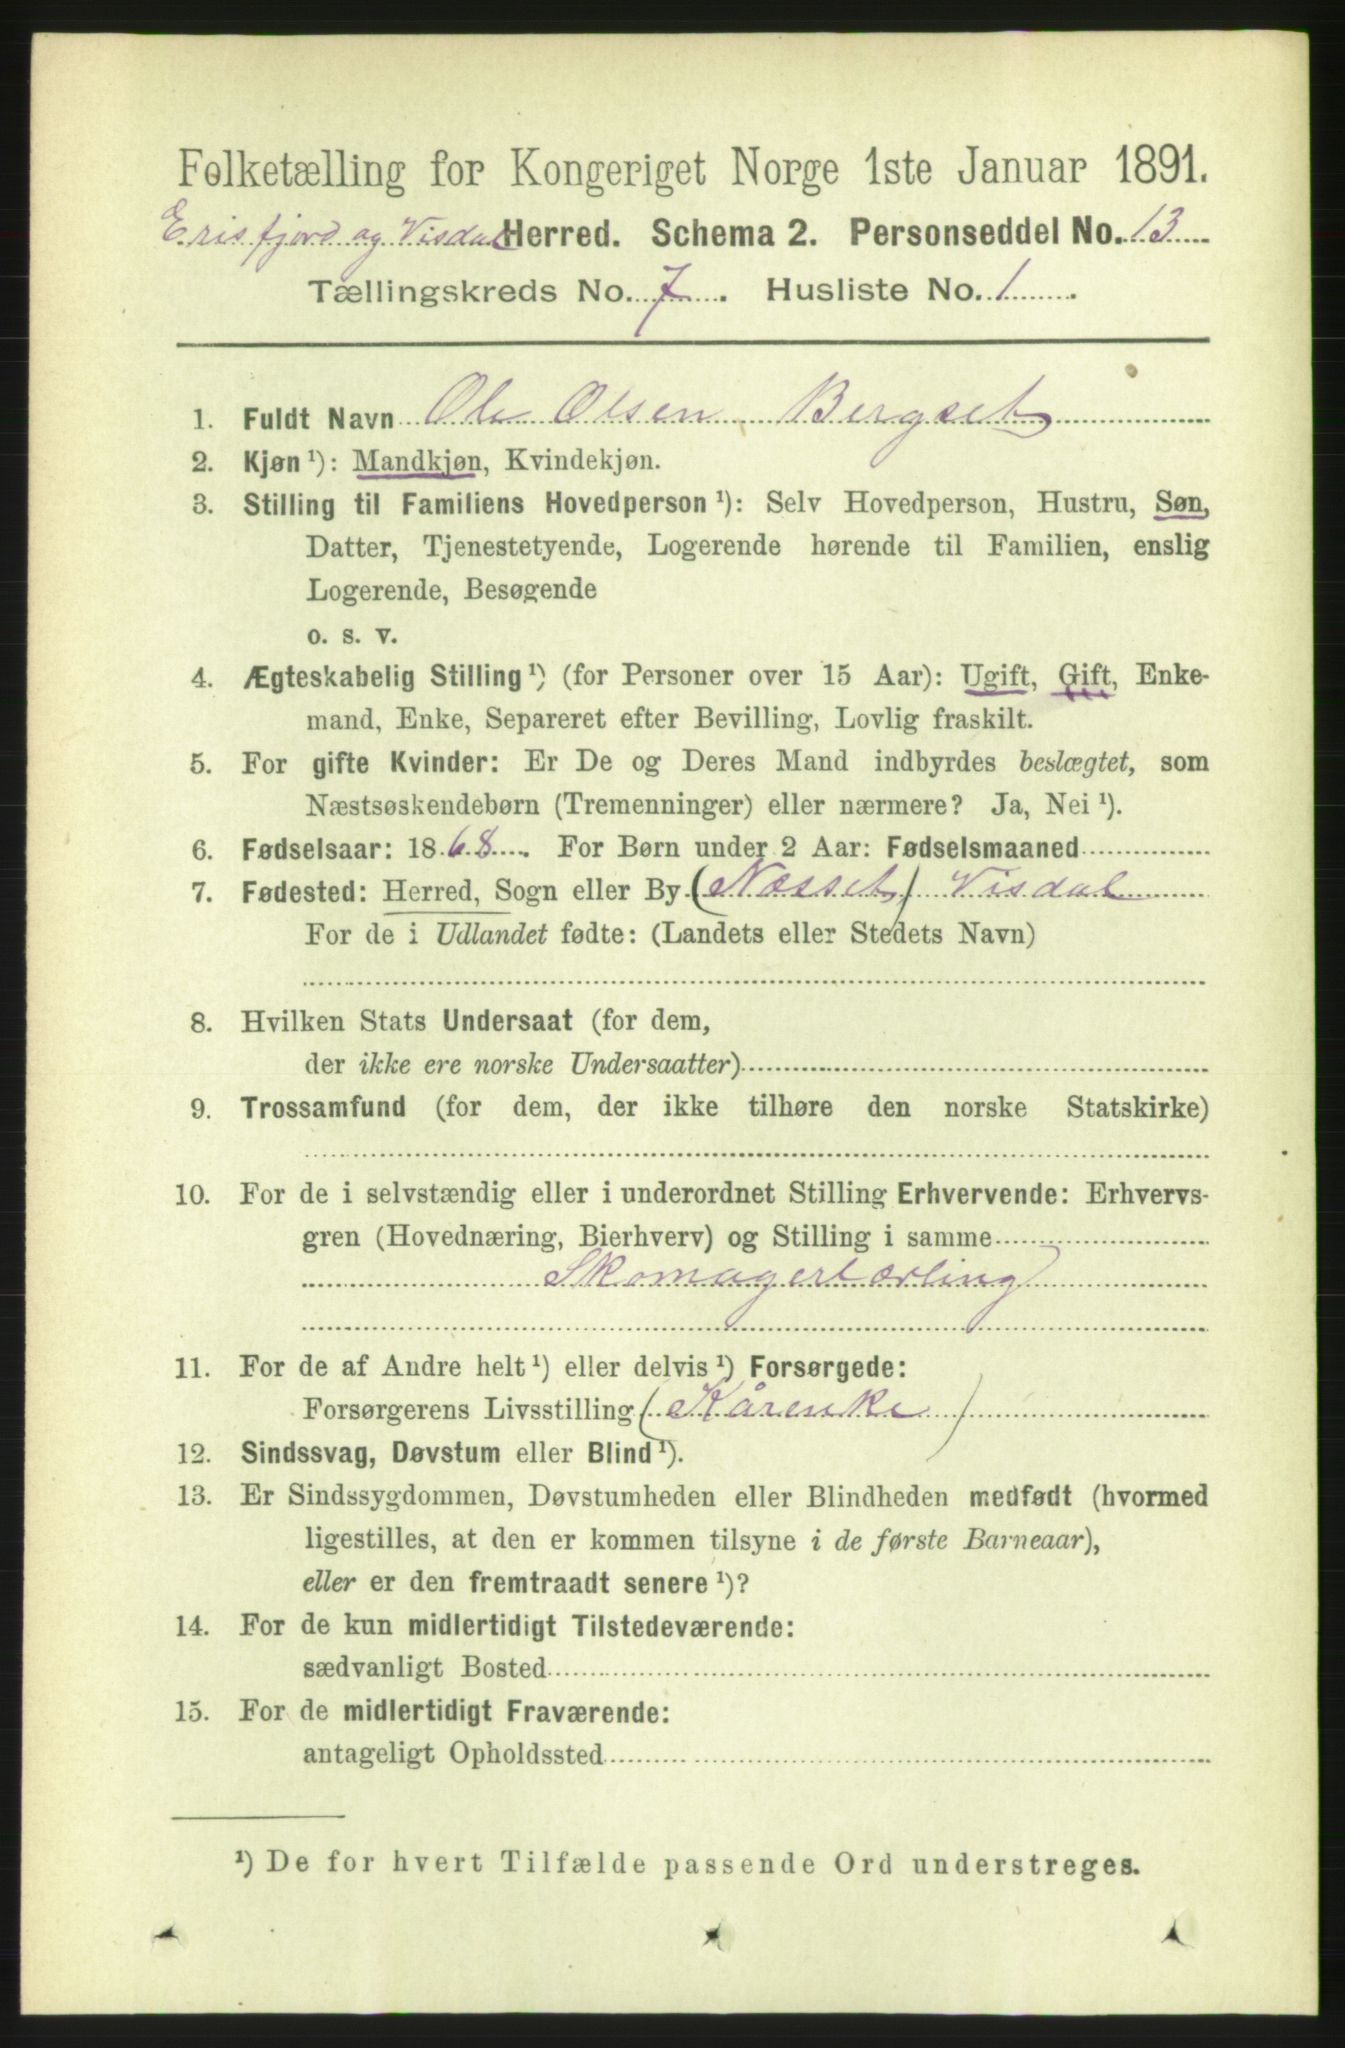 Folketælling for Kongeriget Norge 1ste Januar 1891.
Erisfjord og Visdal Herred. Schema 2. Personseddel No. 13
Tællingskreds No. 7. Husliste No. 1.
1. Fuldt Navn Ole Olsen Bergset
2. Kjøn ¹): Mandkjøn, Kvindekjøn.
3. Stilling til Familiens Hovedperson ¹): Selv Hovedperson, Hustru, Søn,
Datter, Tjenestetyende, Logerende hørende til Familien, enslig
Logerende, Besøgende
o. s. v.
4. Ægteskabelig Stilling ¹) (for Personer over 15 Aar): Ugift, Gift, Enke-
mand, Enke, Separeret efter Bevilling, Lovlig fraskilt.
5. For gifte Kvinder: Er De og Deres Mand indbyrdes beslægtet, som
Næstsøskendebørn (Tremenninger) eller nærmere? Ja, Nei ¹).
6. Fødselsaar: 1868. For Børn under 2 Aar: Fødselsmaaned
7. Fødested: Herred, Sogn eller By (Næsset) Visdal
For de i Udlandet fødte: (Landets eller Stedets Navn)
8. Hvilken Stats Undersaat (for dem,
der ikke ere norske Undersaatter)
9. Trossamfund (for dem, der ikke tilhøre den norske Statskirke)
10. For de i selvstændig eller i underordnet Stilling Erhvervende: Erhvervs-
gren (Hovednæring, Bierhverv) og Stilling i samme
Skomagerlærling
11. For de af Andre helt ¹) eller delvis ¹) Forsørgede:
Forsørgerens Livsstilling (Kårenke)
12. Sindssvag, Døvstum eller Blind ¹).
13. Er Sindssygdommen, Døvstumheden eller Blindheden medfødt (hvormed
ligestilles, at den er kommen tilsyne i de første Barneaar),
eller er den fremtraadt senere ¹)?
14. For de kun midlertidigt Tilstedeværende:
sædvanligt Bosted
15. For de midlertidigt Fraværende:
antageligt Opholdssted
¹) De for hvert Tilfælde passende Ord understreges.